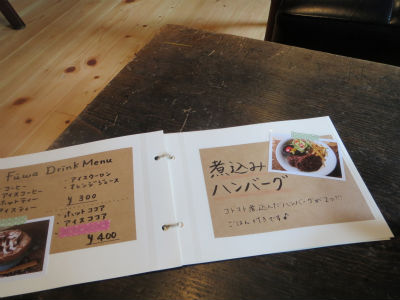 Fuwa Drink Menu
コーヒー
アイスコーヒー
ホットティー
アイスティー
・アイスウーロン
・オレンジジュース
¥300
・ホットココア
・アイスココア
¥400
煮込み
ハンバーグ
コトコト煮込んだハンバーグが2つ!!
ごはん付きです♪